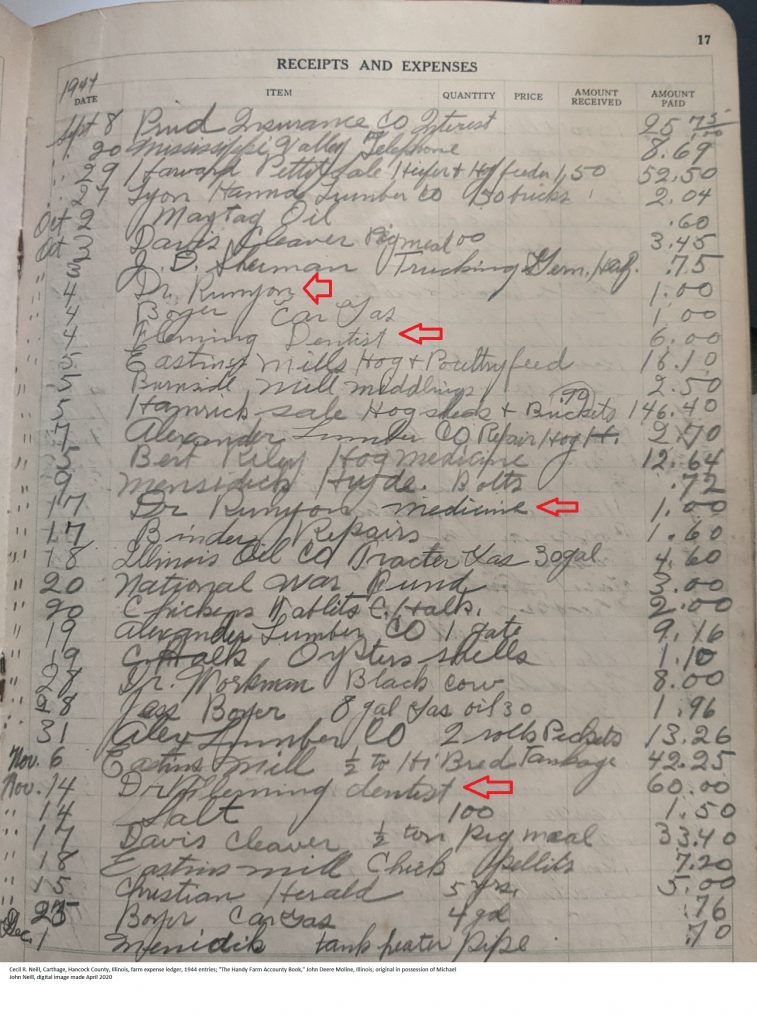 17
RECEIPTS AND EXPENSES
1944
DATE ITEM QUANTITY PRICE AMOUNT RECEIVED AMOUNT PAID
Sept 8 Prud Insurance Co Interest 25.75
" 20 Mississippi Valley Telephone 8.69
" 29 Howard Pettit sale Heifer + Hog feeder 1,50 52.50
" 27 Lyon Hannd Lumber Co 130 bricks 2.04
Oct 2 Maytag Oil .60
Oct 3 Davis Cleaver Pig meal 3.45
" 3 J. D. Sherman Trucking 7.5
" 4 Dr. Runyon 1.00
" 4 Boyer Car Gas 1.00
" 4 Fleming Dentist 6.00
" 5 Eastins Mills Hog + Poultry feed 16.10
" 5 Burnside Mill middlings 2.50
" 5 Hamrick sale Hog sheds + Buckets 146.40
" 7 Alexander Lumber Co Repair Hog H. 2.70
" 5 Bert Riley Hog medicine 12.64
" 9 Mensidick Hyde. Bolts .72
" 17 Dr Runyon medicine 1.00
" 17 Binder Repairs 1.60
" 18 Illinois Oil Co Tracter Gas 30 gal 4.60
" 20 National War Fund 3.00
" 20 Chickens Tablits C. Halk. 2.00
" 19 Alexander Lumber Co 1 gate 9.16
" 19 C. Halk Oysters shells 1.10
" 28 Dr. Workman Black cow 8.00
" 28 Jass Boyer 8 gal Gas oil 30 1.96
" 31 Alex Lumber Co 2 rolls Pickets 13.26
Nov. 6 Eastins Mill ½ to Hi Bred Tankage 42.25
Nov. 14 Dr Fleming dentist 60.00
" 14 Salt 100 1.50
" 17 Davis Cleaver ½ ton pig meal 33.40
" 18 Eastins mill Chick pellits 7.20
" 15 Christian Herald 5 yrs. 5.00
" 25 Boyer Car Gas 4 gal .76
Dec. 1 Menidik tank heater pipe .70
Cecil R. Neill, Carthage, Hancock County, Illinois, farm expense ledger, 1944 entries; "The Handy Farm Accounty Book," John Deere Moline, Illinois; original in possession of Michael
John Neill, digital image made April 2020